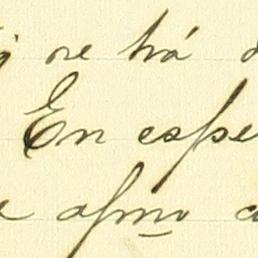 se há
En espe
afmo